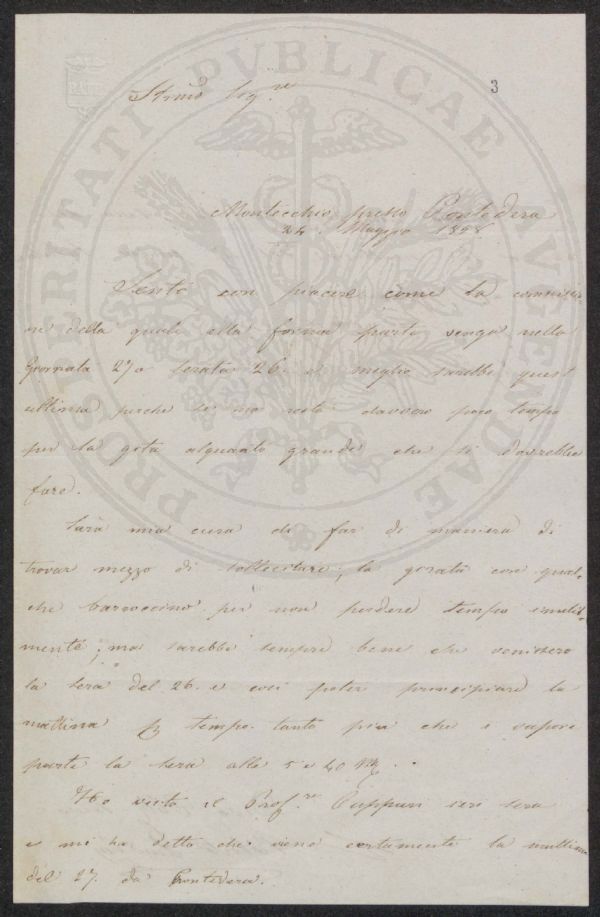 3
PROSPERITATI PVBLICAE AVGENDAE
Montecchio presso Pontedera
24 Maggio 1858
Sento con piacere come la commissio
ne della quale ella forma parte venga nella
Giornata 27 o serata 26. e meglio sarebbe quest
ultima perche se no resta davvero poco tempo
per la gita alquanto grande che si dovrebbe
fare.
Sarà mia cura di far di maniera di
trovar mezzo di sollecitare, la girata con qual-
che barroccino per non perdere tempo inutil-
mente; ma sarebbe sempre bene che venissero
la sera del 26. e così poter principiare la
mattina tempo tanto più che i vapore
parte la sera alle 5 e 40
Ho visto il Prof.re ieri sera
e mi ha detto che viene certamente la mattina
del 27. da Pontedera.